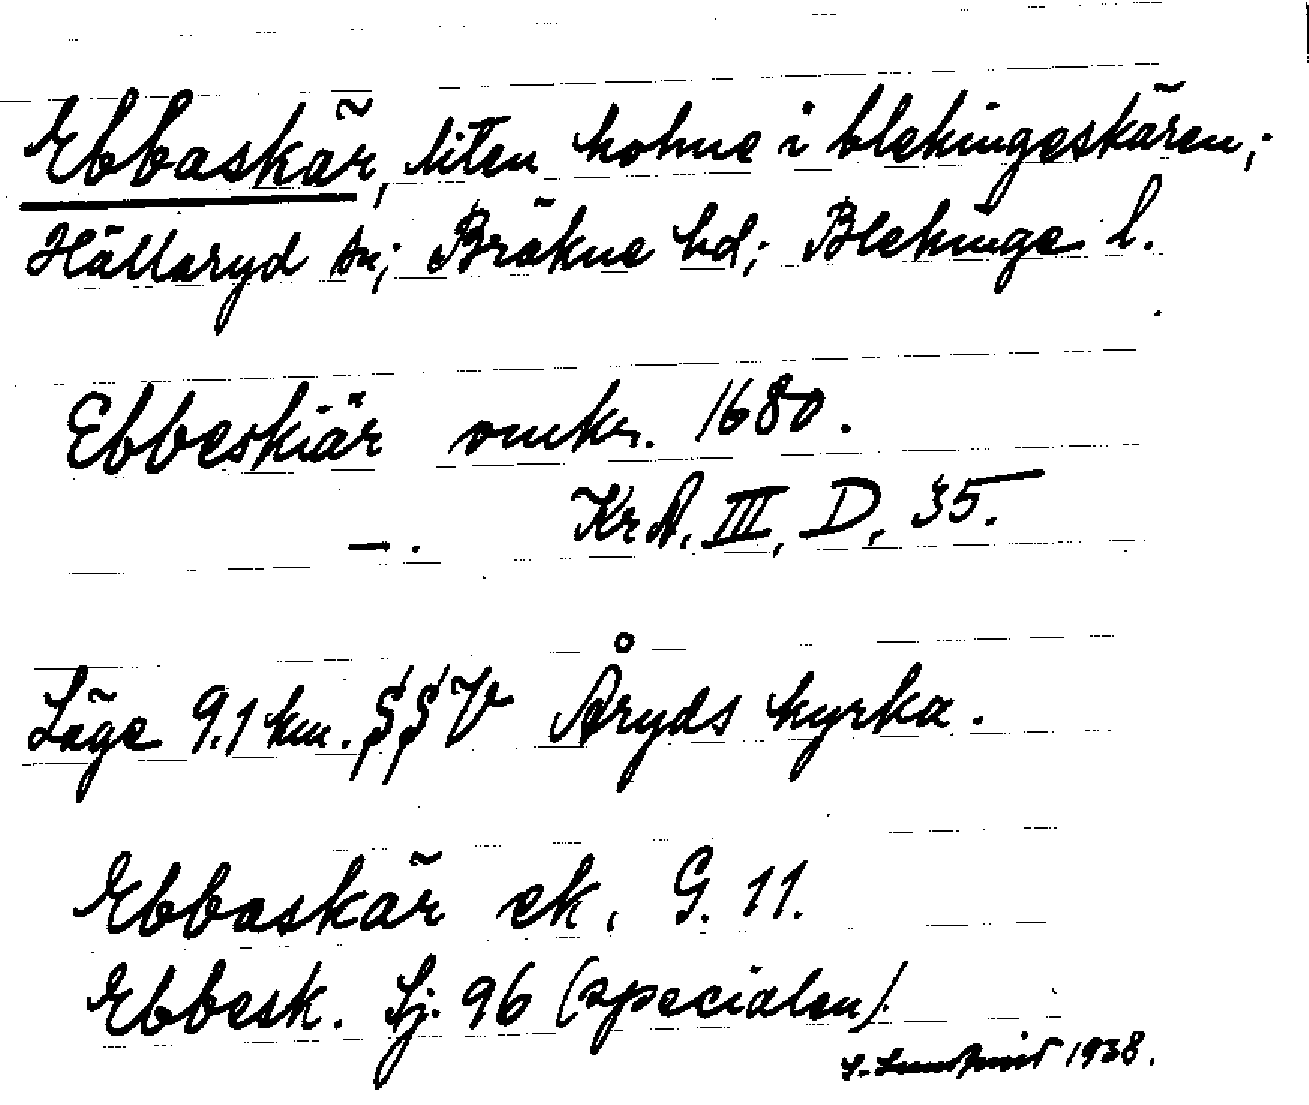 Ebbaskär, liten holme i blekingeskären;
Hällaryd sn; Bräkne hd; Blekinge l.
Ebbeskiär omkr. 1680.
—. KrA. III, D, 35.
Läge 9.1 km. SSV Åryds kyrka.
Ebbaskär ek. G. 11.
Ebbesk. Sj. 96 (specialen).
1938.